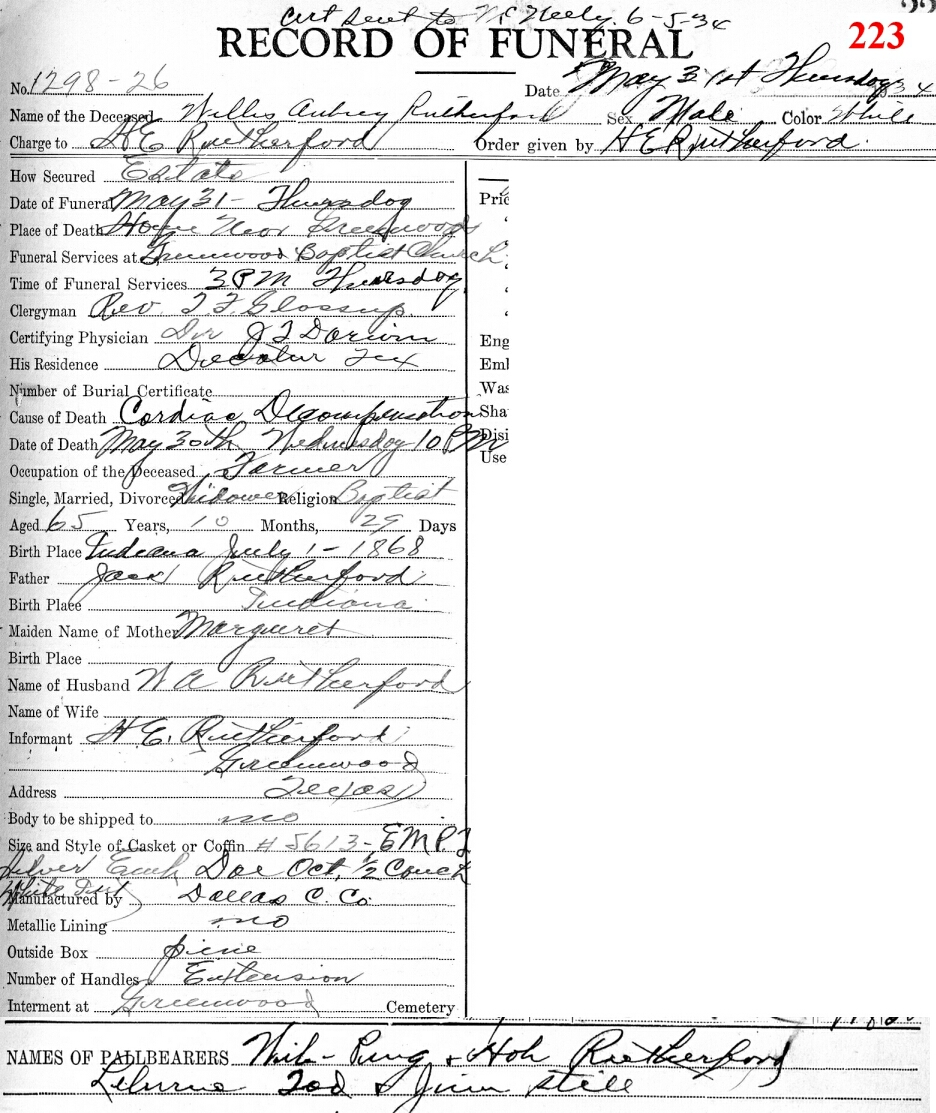 Cert sent to McNeely 6-5-34
RECORD OF FUNERAL
223
No. 1298-26
Date May 31st Thursday 34
Name of the Deceased Willis Aubrey Rutherford Sex Male Color White
Charge to H E Rutherford Order given by H E Rutherford
How Secured Estate
Date of Funeral May 31 - Thursday Pric
Place of Death Home Near Greenwood
Funeral Services at Greenwood Baptist Church
Time of Funeral Services 3 PM Thursday
Clergyman Rev T F Glossup
Certifying Physician Dr J T Darwin Eng
His Residence Decatur Tex Eml
Number of Burial Certificate Was
Cause of Death Cordiac Decompensation Sha
Date of Death May 30th Wednesday 10 PM Disi
Occupation of the Deceased Farmer Use
Single, Married, Divorced Widower Religion Baptist
Aged 65 Years, 10 Months, 29 Days
Birth Place Indiana July 1 - 1868
Father Jack Rutherford
Birth Place Indiana
Maiden Name of Mother Margaret
Birth Place
Name of Husband W A Rutherford
Name of Wife
Informant H E. Rutherford
Greenwood
Address Texas
Body to be shipped to no
Size and Style of Casket or Coffin # 5613 - EMP
Silver Doe Oct. 1/2 Couch
White
Manufactured by Dallas C. Co.
Metallic Lining no
Outside Box pine
Number of Handles Extension
Interment at Greenwood Cemetery
NAMES OF PALLBEARERS & Rutherford
Tod & Jim Still